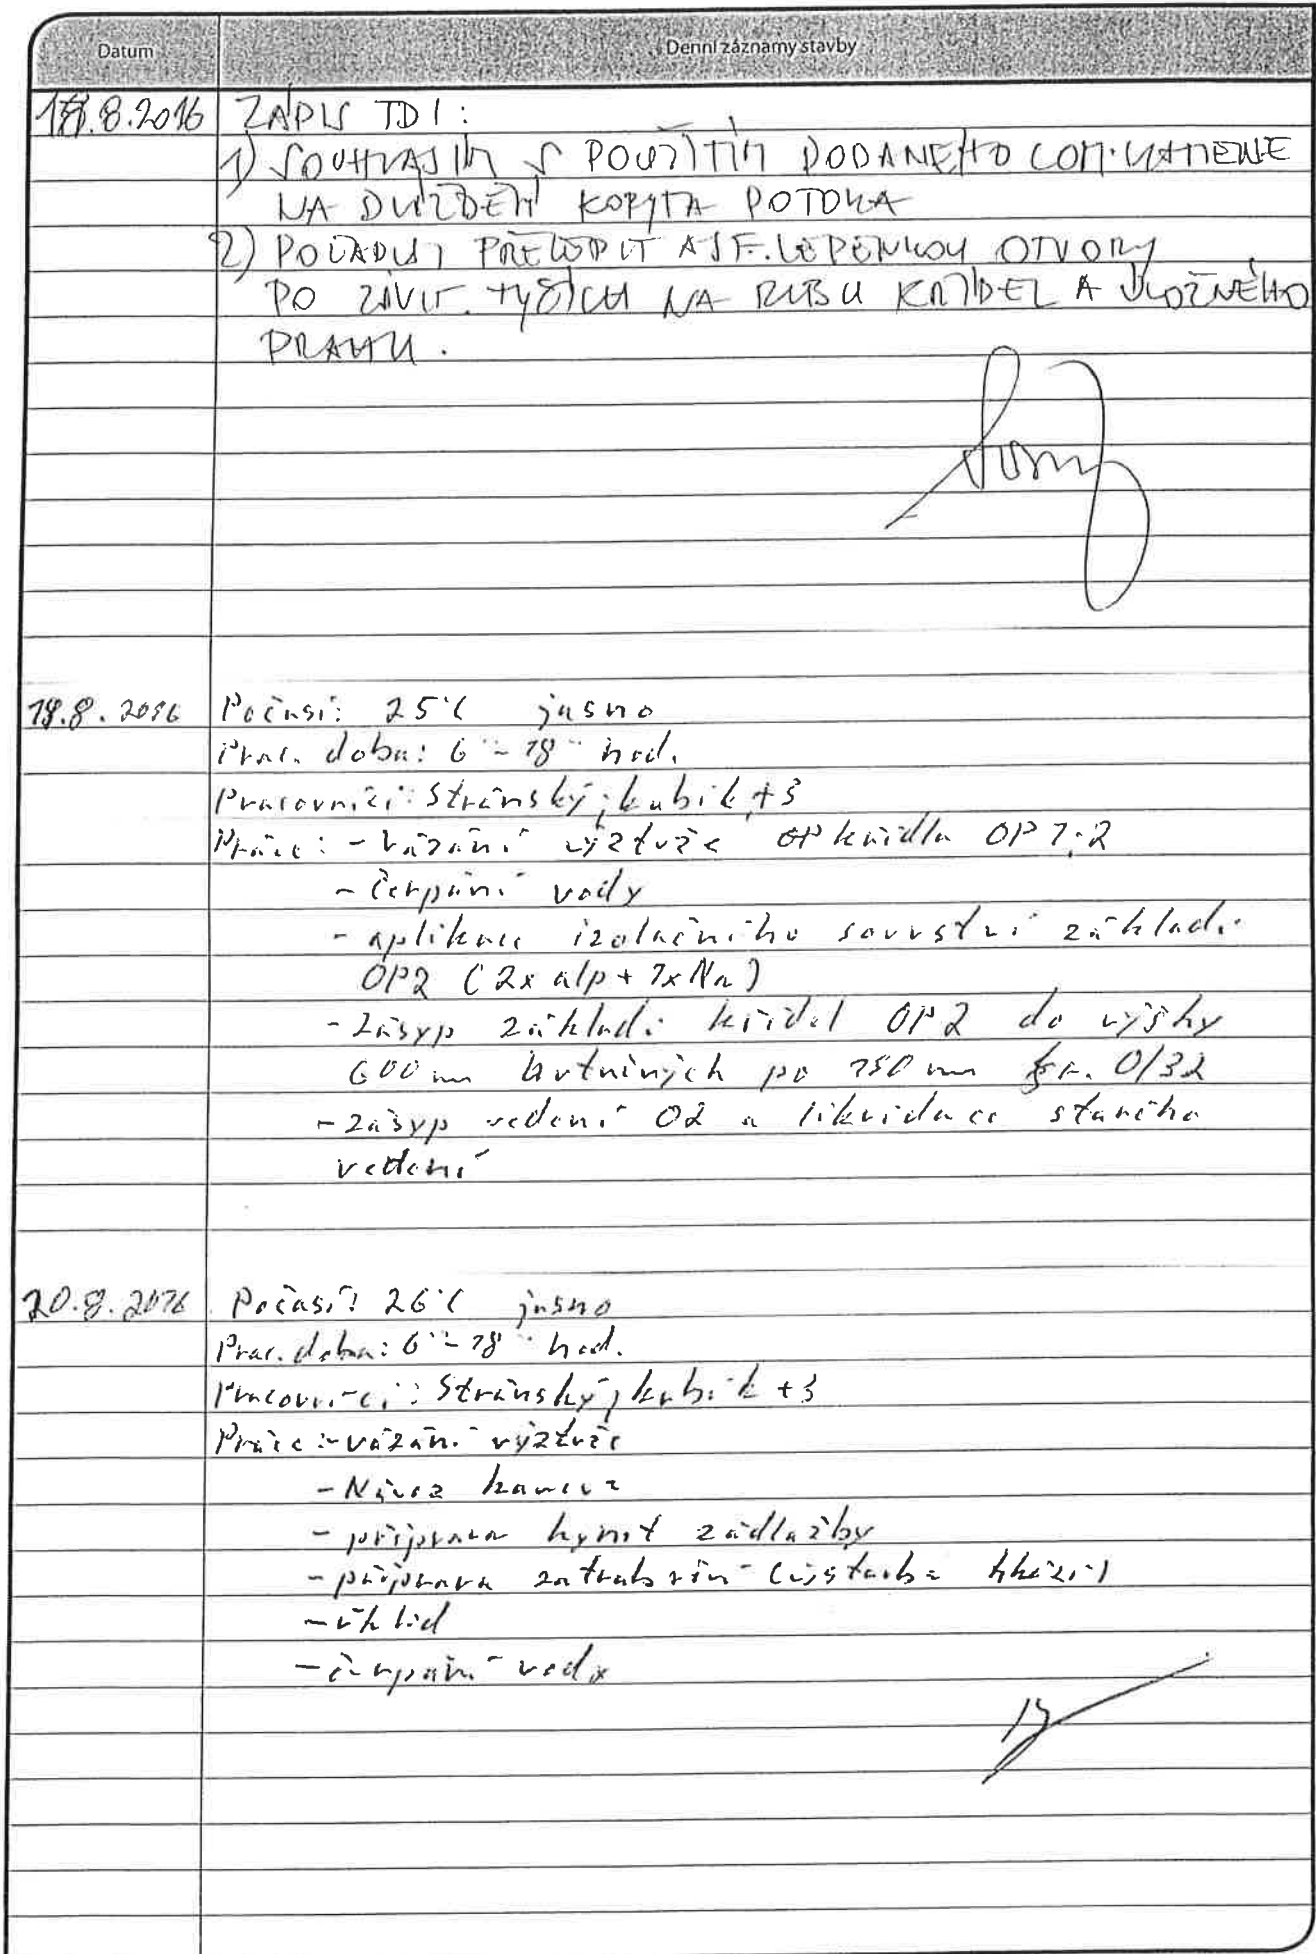 Datum
Denní záznamy stavby
18.8.2016 ZÁPIS TDI:
1) SOUHLASÍM S POUŽITÍM DODANÉHO LOM. KAMENE
NA DLÁŽDĚNÍ KORYTA POTOKA
2) POŽADUJI PŘELEPIT ASF. LEPENKOU OTVORY
PO ZÁVIT. TYČÍCH NA RUBU KŘÍDEL A ÚLOŽNÉHO
PRAHU.
19.8.2016 Počasí: 25°C jasno
Prac. doba: 6⁰⁰ - 18⁰⁰ hod.
Pracovníci: Stránský, Kubík +3
Práce: - vázání výztuže OP křídla OP 1, 2
- čerpání vody
- aplikace izolačního souvrství základů
OP2 (2x alp + 1x Na)
- zásyp základů křídel OP2 do výšky
600 mm hutněných po 150 mm fr. 0/32
- zásyp vedení O2 a likvidace starého
vedení
20.8.2016 Počasí: 26°C jasno
Prac. doba: 6⁰⁰ - 18⁰⁰ hod.
Pracovníci: Stránský, Kubík +3
Práce: - vázání výztuže
- Návoz kamene
- příprava zádlažby
- příprava zatrubnění
- úklid
- čerpání vody